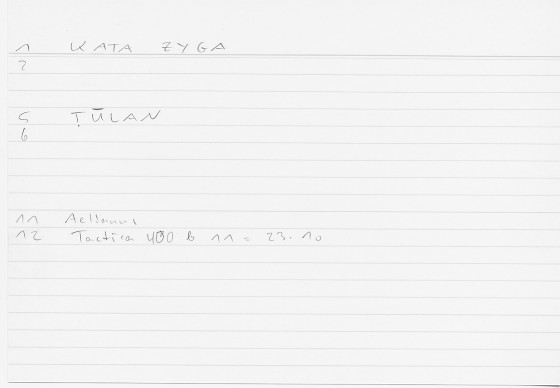 1 KATA ZYGA
2
5 ṬŪLAN
6
11 Aelianus
12 Tactica 400 b 11 = 23.10